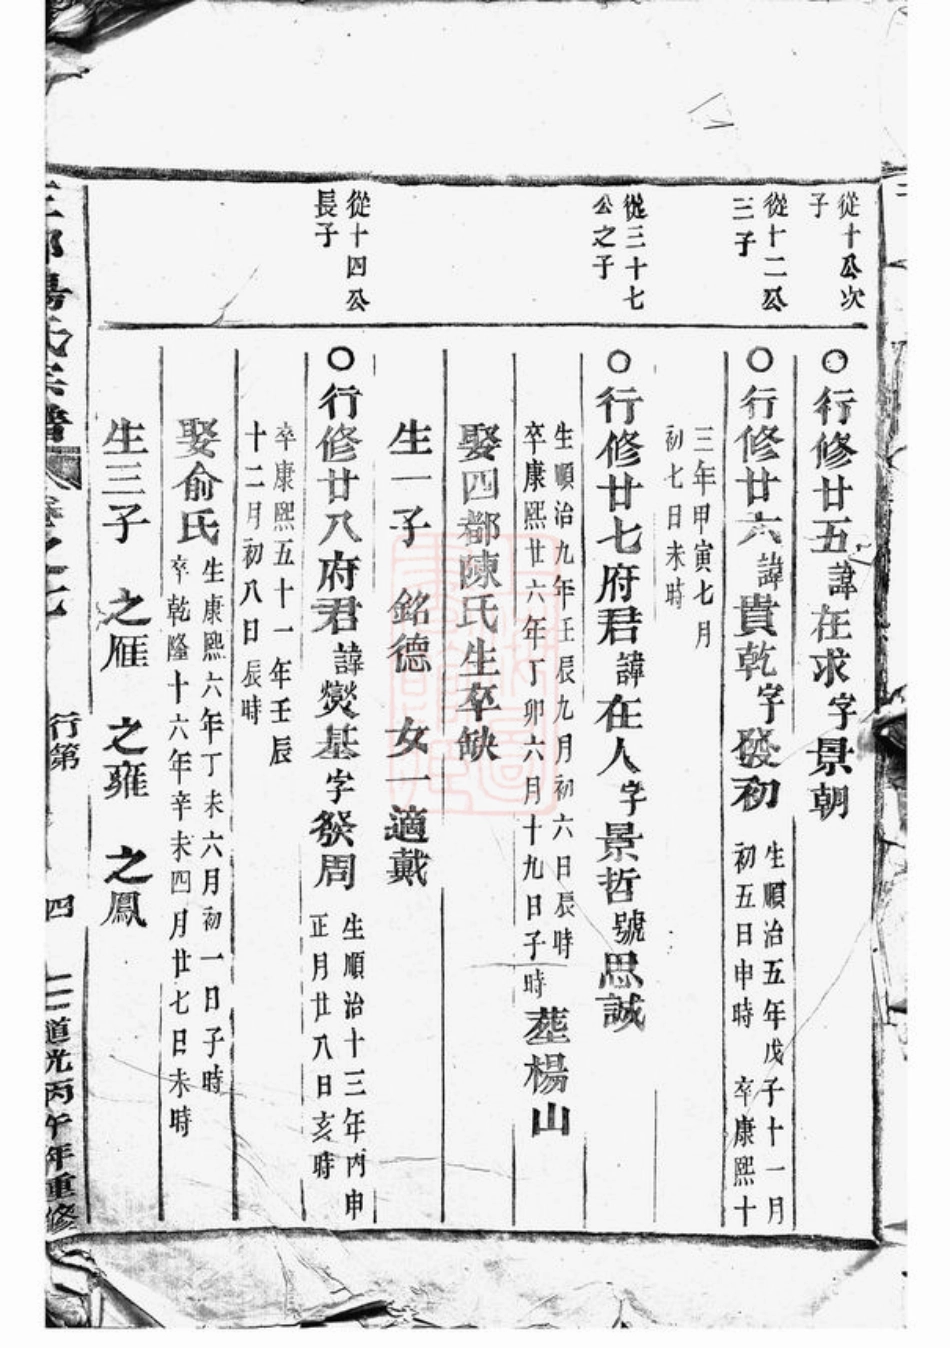 從十公次
子
〇行修廿五諱在求字景朝
從十二公
三子
〇行修廿六諱貴乾字發初
生順治五年戊子十一月
初五日申時 卒康熙十
三年甲寅七月
初七日未時
從三十七
公之子
〇行修廿七府君諱在人字景哲號思誠
生順治九年壬辰九月初六日辰時
卒康熙廿六年丁卯六月十九日子時
葬楊山
娶四都陳氏生卒缺
生一子 銘德 女一適戴
從十四公
長子
〇行修廿八府君諱燮基字發周
生順治十三年丙申
正月廿八日亥時
卒康熙五十一年壬辰
十二月初八日辰時
娶俞氏
生康熙六年丁未六月初一日子時
卒乾隆十六年辛未四月廿七日未時
生三子 之雁 之雍 之鳳
氏宗譜 卷之七 行第 四 道光丙午年重修